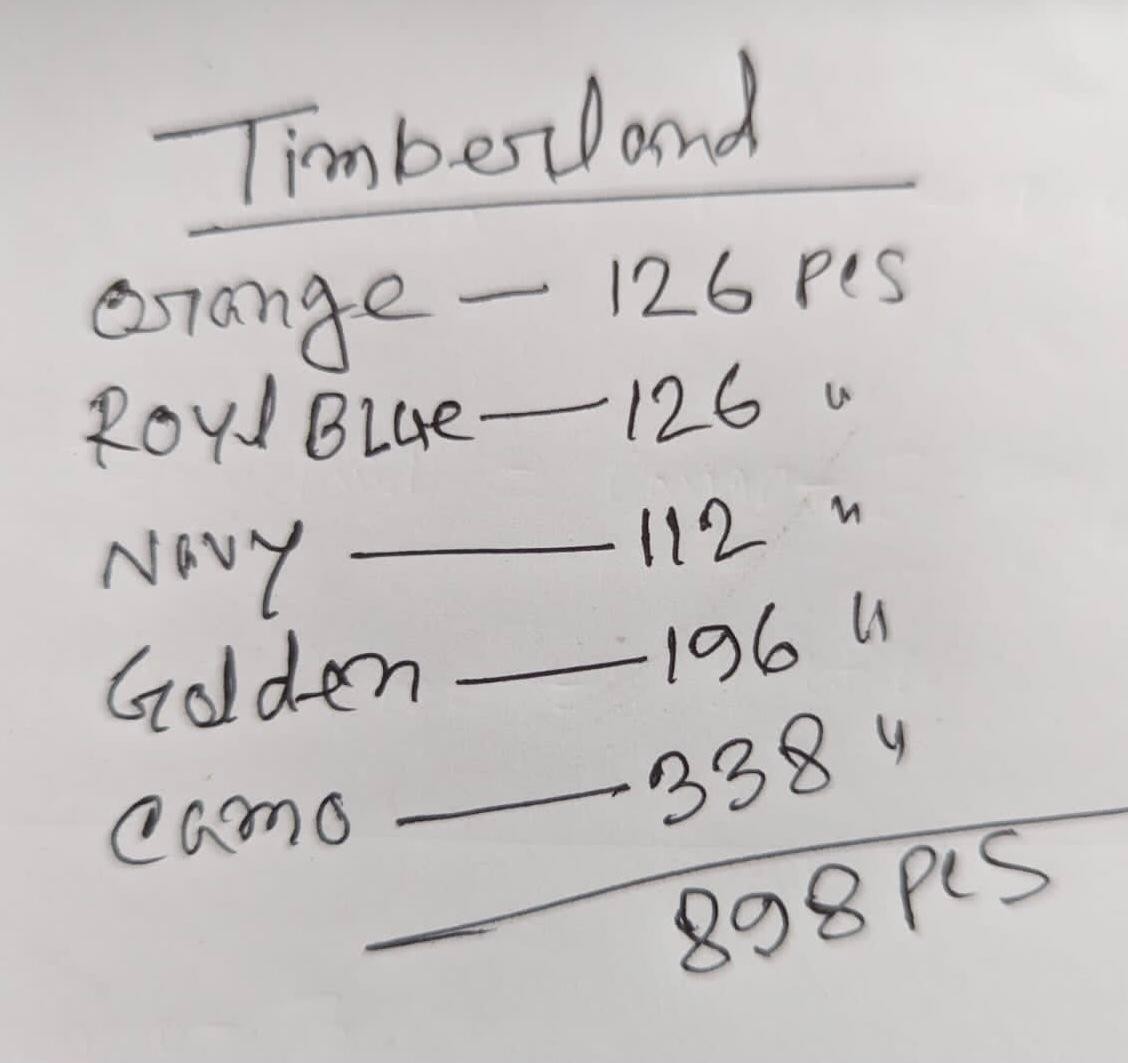 Timberland
Orange — 126 Pcs
Royl Blue — 126 "
Navy — 112 "
Golden — 196 "
Camo — 338 "
898 Pcs